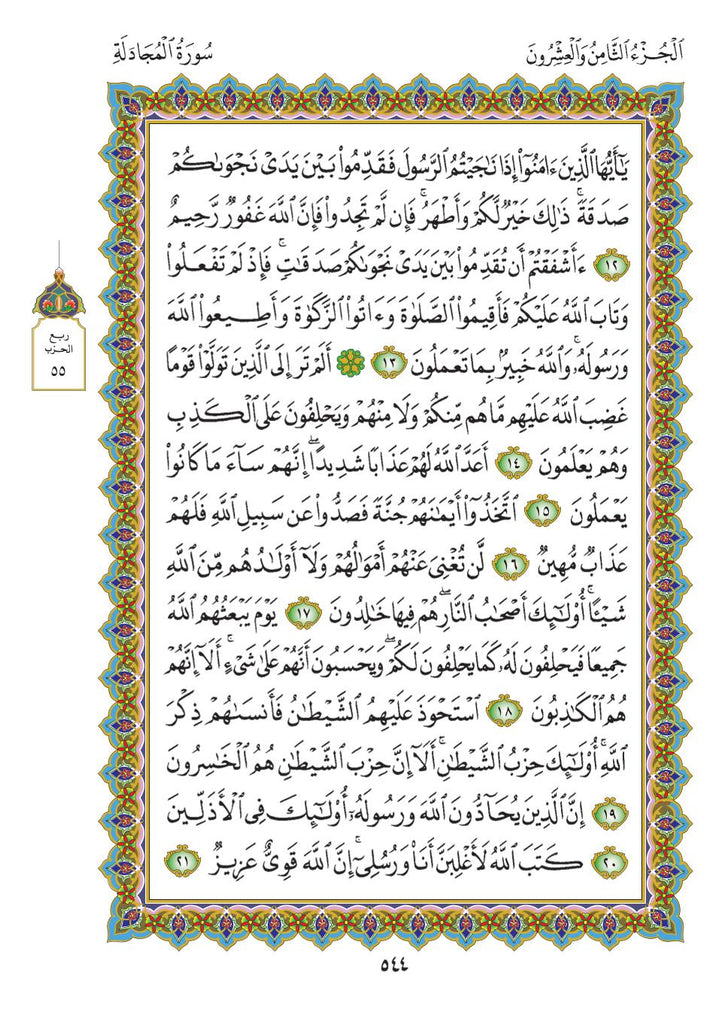 ٱلْجُزْءُ ٱلثَّامِنُ وَٱلْعِشْرُونَ
سُورَةُ ٱلْمُجَادَلَةِ
يَٰٓأَيُّهَا ٱلَّذِينَ ءَامَنُوٓا۟ إِذَا نَٰجَيْتُمُ ٱلرَّسُولَ فَقَدِّمُوا۟ بَيْنَ يَدَىْ نَجْوَىٰكُمْ
صَدَقَةً ۚ ذَٰلِكَ خَيْرٌ لَّكُمْ وَأَطْهَرُ ۚ فَإِن لَّمْ تَجِدُوا۟ فَإِنَّ ٱللَّهَ غَفُورٌ رَّحِيمٌ
١٢ ءَأَشْفَقْتُمْ أَن تُقَدِّمُوا۟ بَيْنَ يَدَىْ نَجْوَىٰكُمْ صَدَقَٰتٍ ۚ فَإِذْ لَمْ تَفْعَلُوا۟
وَتَابَ ٱللَّهُ عَلَيْكُمْ فَأَقِيمُوا۟ ٱلصَّلَوٰةَ وَءَاتُوا۟ ٱلزَّكَوٰةَ وَأَطِيعُوا۟ ٱللَّهَ
وَرَسُولَهُۥ ۚ وَٱللَّهُ خَبِيرٌۢ بِمَا تَعْمَلُونَ ١٣ أَلَمْ تَرَ إِلَى ٱلَّذِينَ تَوَلَّوْا۟ قَوْمًا
غَضِبَ ٱللَّهُ عَلَيْهِم مَّا هُم مِّنكُمْ وَلَا مِنْهُمْ وَيَحْلِفُونَ عَلَى ٱلْكَذِبِ
وَهُمْ يَعْلَمُونَ ١٤ أَعَدَّ ٱللَّهُ لَهُمْ عَذَابًا شَدِيدًا ۖ إِنَّهُمْ سَآءَ مَا كَانُوا۟
يَعْمَلُونَ ١٥ ٱتَّخَذُوٓا۟ أَيْمَٰنَهُمْ جُنَّةً فَصَدُّوا۟ عَن سَبِيلِ ٱللَّهِ فَلَهُمْ
عَذَابٌ مُّهِينٌ ١٦ لَّن تُغْنِىَ عَنْهُمْ أَمْوَٰلُهُمْ وَلَآ أَوْلَٰدُهُم مِّنَ ٱللَّهِ
شَيْـًٔا ۚ أُو۟لَٰٓئِكَ أَصْحَٰبُ ٱلنَّارِ ۖ هُمْ فِيهَا خَٰلِدُونَ ١٧ يَوْمَ يَبْعَثُهُمُ ٱللَّهُ
جَمِيعًا فَيَحْلِفُونَ لَهُۥ كَمَا يَحْلِفُونَ لَكُمْ ۖ وَيَحْسَبُونَ أَنَّهُمْ عَلَىٰ شَىْءٍ ۚ أَلَآ إِنَّهُمْ
هُمُ ٱلْكَٰذِبُونَ ١٨ ٱسْتَحْوَذَ عَلَيْهِمُ ٱلشَّيْطَٰنُ فَأَنسَىٰهُمْ ذِكْرَ
ٱللَّهِ ۚ أُو۟لَٰٓئِكَ حِزْبُ ٱلشَّيْطَٰنِ ۚ أَلَآ إِنَّ حِزْبَ ٱلشَّيْطَٰنِ هُمُ ٱلْخَٰسِرُونَ
١٩ إِنَّ ٱلَّذِينَ يُحَآدُّونَ ٱللَّهَ وَرَسُولَهُۥٓ أُو۟لَٰٓئِكَ فِى ٱلْأَذَلِّينَ
٢٠ كَتَبَ ٱللَّهُ لَأَغْلِبَنَّ أَنَا۠ وَرُسُلِىٓ ۚ إِنَّ ٱللَّهَ قَوِىٌّ عَزِيزٌ ٢١
ربع
الحزب
٥٥
٥٤٤